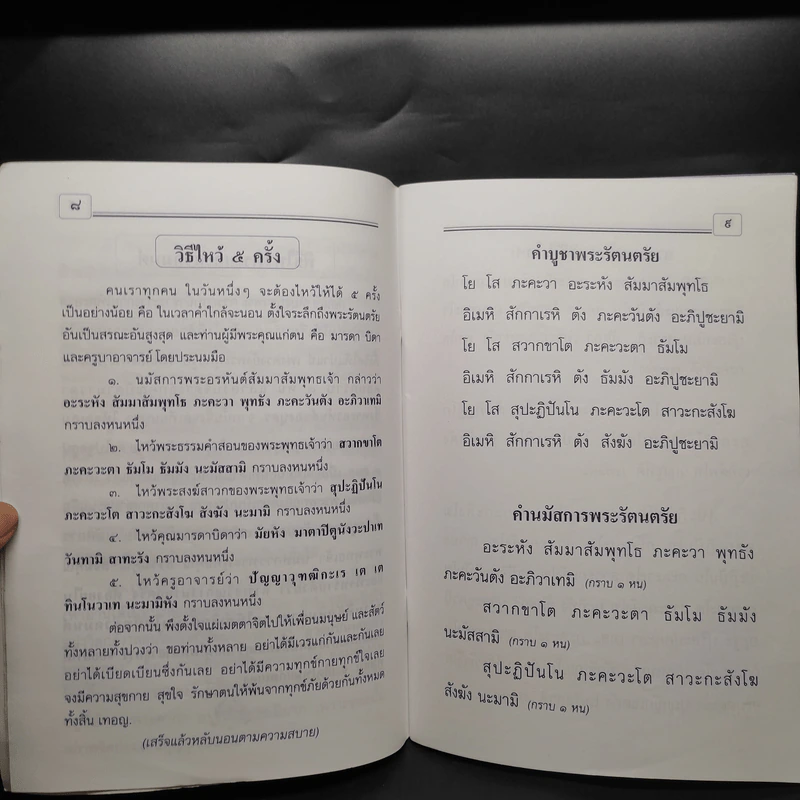 ๘
วิธีไหว้ ๕ ครั้ง
คนเราทุกคน ในวันหนึ่งๆ จะต้องไหว้ให้ได้ ๕ ครั้ง
เป็นอย่างน้อย คือ ในเวลาค่ำใกล้จะนอน ตั้งใจระลึกถึงพระรัตนตรัย
อันเป็นสรณะอันสูงสุด และท่านผู้มีพระคุณแก่ตน คือ มารดา บิดา
และครูบาอาจารย์ โดยประนมมือ
๑. นมัสการพระอรหันต์สัมมาสัมพุทธเจ้า กล่าวว่า
อะระหัง สัมมาสัมพุทโธ ภะคะวา พุทธัง ภะคะวันตัง อะภิวาเทมิ
กราบลงหนหนึ่ง
๒. ไหว้พระธรรมคำสอนของพระพุทธเจ้าว่า สวากขาโต
ภะคะวะตา ธัมโม ธัมมัง นะมัสสามิ กราบลงหนหนึ่ง
๓. ไหว้พระสงฆ์สาวกของพระพุทธเจ้าว่า สุปะฏิปันโน
ภะคะวะโต สาวะกะสังโฆ สังฆัง นะมามิ กราบลงหนหนึ่ง
๔. ไหว้คุณมารดาบิดาว่า มัยหัง มาตาปิตูนังวะปาเท
วันทามิ สาทะรัง กราบลงหนหนึ่ง
๕. ไหว้ครูอาจารย์ว่า ปัญญาวุฑฒิกะเร เต เต
ทินโนวาเท นะมามิหัง กราบลงหนหนึ่ง
ต่อจากนั้น พึงตั้งใจแผ่เมตตาจิตไปให้เพื่อนมนุษย์ และสัตว์
ทั้งหลายทั้งปวงว่า ขอท่านทั้งหลาย อย่าได้มีเวรแก่กันและกันเลย
อย่าได้เบียดเบียนซึ่งกันเลย อย่าได้มีความทุกข์กายทุกข์ใจเลย
จงมีความสุขกาย สุขใจ รักษาตนให้พ้นจากทุกข์ภัยด้วยกันทั้งหมด
ทั้งสิ้น เทอญ.
(เสร็จแล้วหลับนอนตามความสบาย)
๙
คำบูชาพระรัตนตรัย
โย โส ภะคะวา อะระหัง สัมมาสัมพุทโธ
อิเมหิ สักกาเรหิ ตัง ภะคะวันตัง อะภิปูชะยามิ
โย โส สวากขาโต ภะคะวะตา ธัมโม
อิเมหิ สักกาเรหิ ตัง ธัมมัง อะภิปูชะยามิ
โย โส สุปะฏิปันโน ภะคะวะโต สาวะกะสังโฆ
อิเมหิ สักกาเรหิ ตัง สังฆัง อะภิปูชะยามิ
คำนมัสการพระรัตนตรัย
อะระหัง สัมมาสัมพุทโธ ภะคะวา พุทธัง
ภะคะวันตัง อะภิวาเทมิ (กราบ ๑ หน)
สวากขาโต ภะคะวะตา ธัมโม ธัมมัง
นะมัสสามิ (กราบ ๑ หน)
สุปะฏิปันโน ภะคะวะโต สาวะกะสังโฆ
สังฆัง นะมามิ (กราบ ๑ หน)